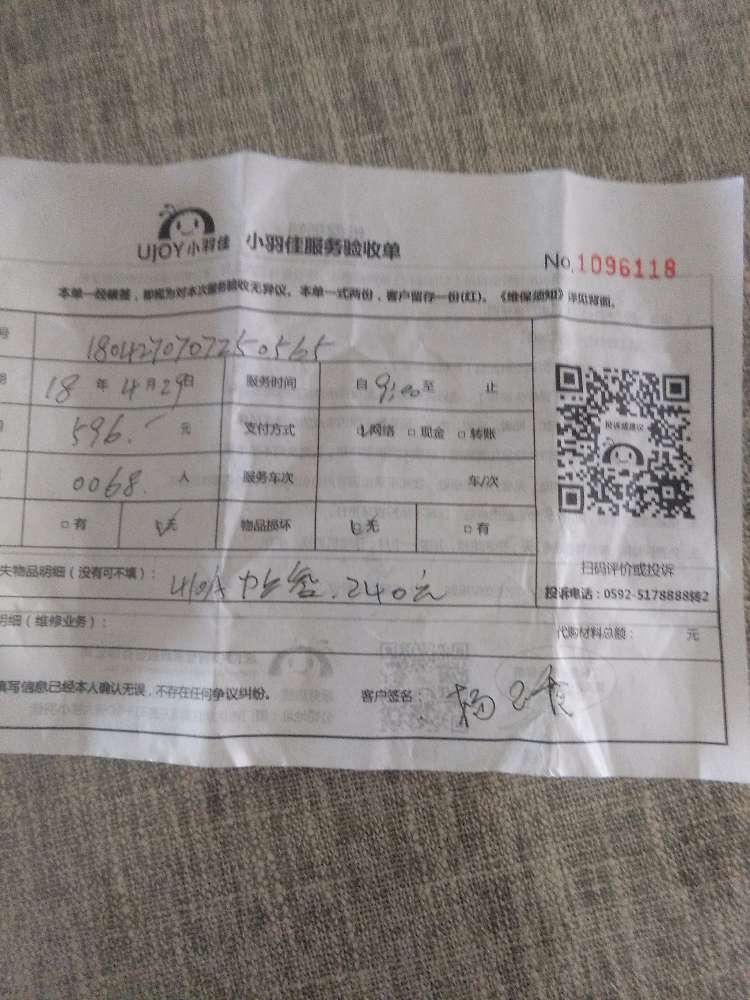 UJOY小羽佳 小羽佳服务验收单
No.1096118
本单一经碳签，即视为对本次服务验收无异议。本单一式两份，客户留存一份(红)。《维保须知》详见背面。
号 1804270707250565
18 年 4 月 29 日 服务时间 自 9:00 至 止
596. 元 支付方式 网络 □ 现金 □ 转账
0068 人 服务车次 车/次
□ 有 无 物品损坏 无 □ 有
投诉或建议
扫码评价或投诉
投诉电话：0592-5178888转2
失物品明细（没有可不填）： 240元
明细（维修业务）： 代购材料总额： 元
填写信息已经本人确认无误，不存在任何争议纠纷。 客户签名： 杨